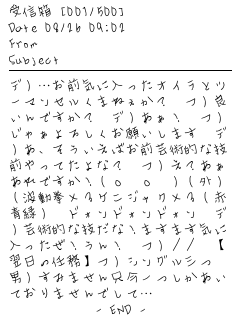 受信箱 [001/500]
Date 08/26 09:02
From
Subject
デ)…お前気に入ったオイラとツ
ーマンセルくまねぇか? フ)良
いんですか? デ)あぁ! フ)
じゃぁよろしくお願いします デ
)あ、そういえばお前芸術的な技
前やってたよな? フ)えてぁぁ
あれですか!(○ ○ )(外)
(波動拳×3ケニジャク×3(赤
青緑) ドォンドォンドォン デ
)芸術的な技だな!ますます気に
入ったぜ!うん! フ)// 【
翌日の任務】フ)シングルミつ
男)すみません只今一つしかあい
ておりませんでして…
- END -